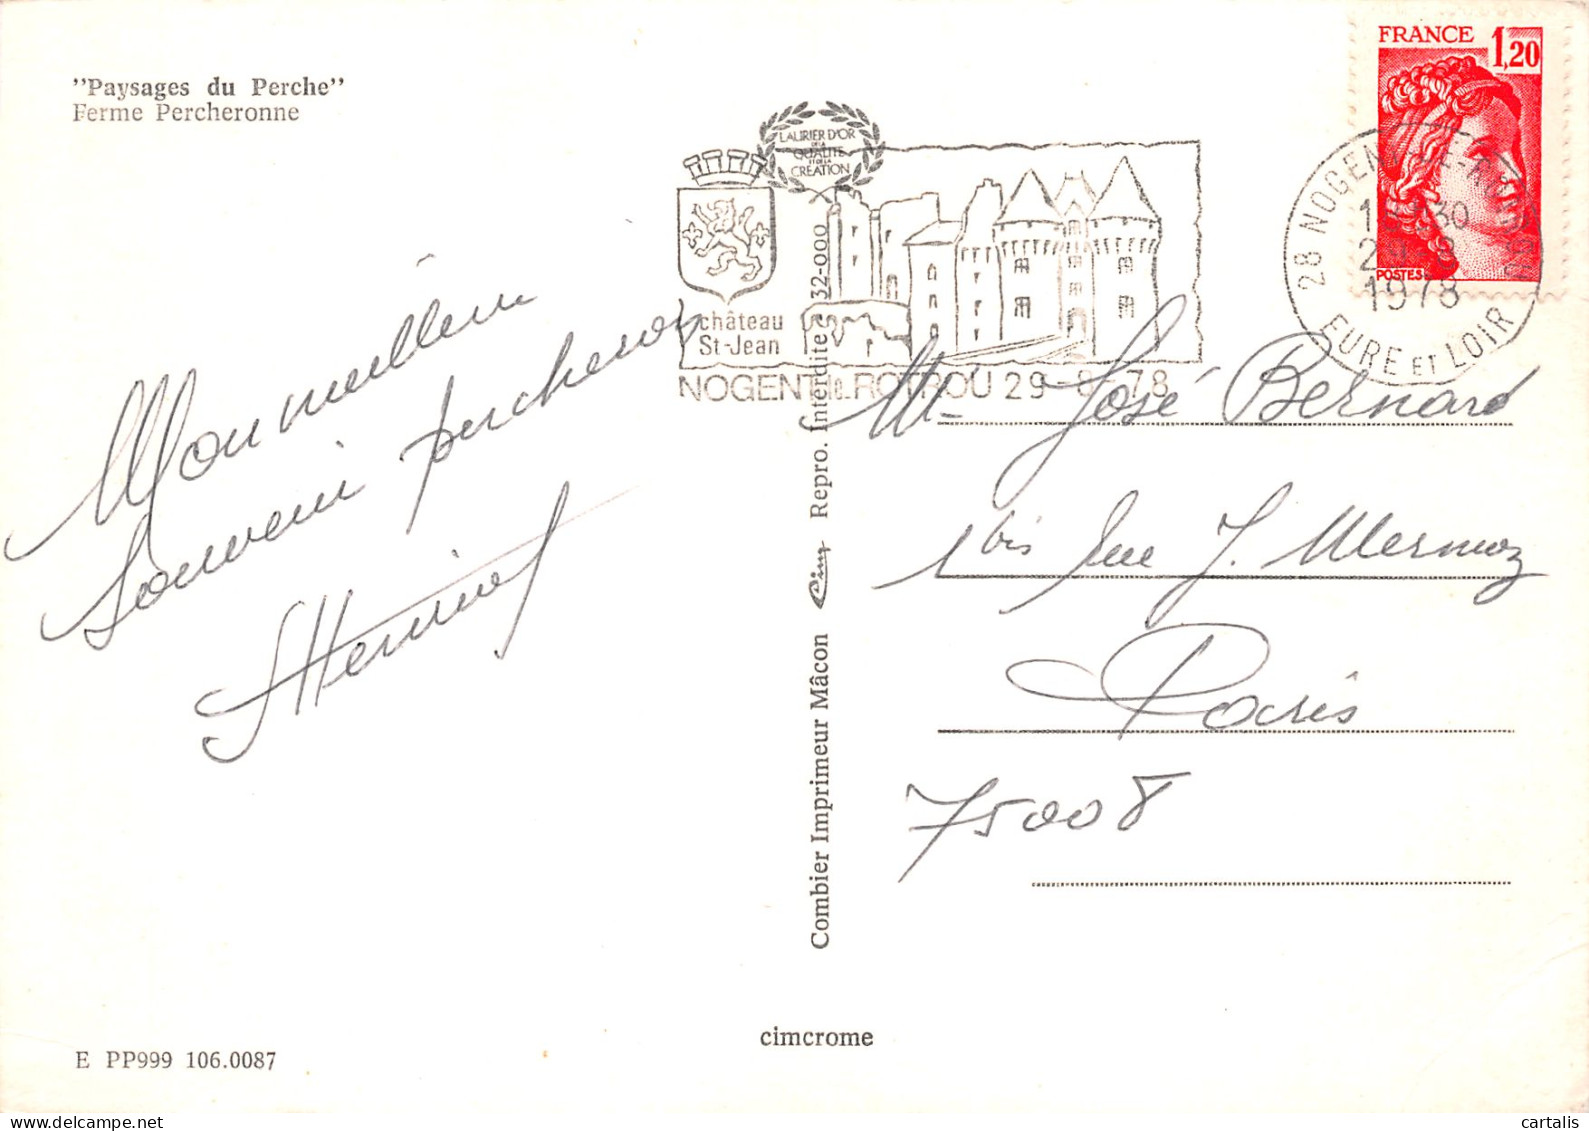 "Paysages du Perche"
Ferme Percheronne
Mon meilleur
Souvenir percheron
LAURIER D'OR
DE LA
QUALITE
ET DE LA
CREATION
château
St-Jean
NOGENT le ROTROU 29 -8- 78
FRANCE 1,20
POSTES
28 NOGENT-LE-ROTROU
1978
EURE ET LOIR
Mr José Bernard
1 bis rue J. Mermoz
Paris
75008
Combier Imprimeur Mâcon Cim Repro. Interdite 32-000
cimcrome
E PP999 106.0087
cartalis.com